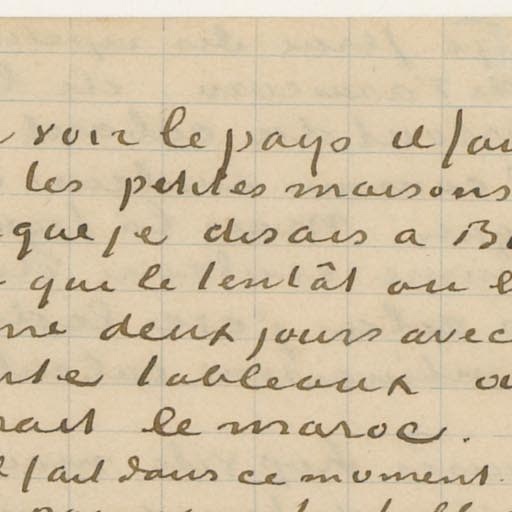 voir le pays il fau
les petites maisons
que je disais a B
que le tentât ou l
me deux jours avec
nte tableaux ou
rait le maroc.
l fait dans ce moment.